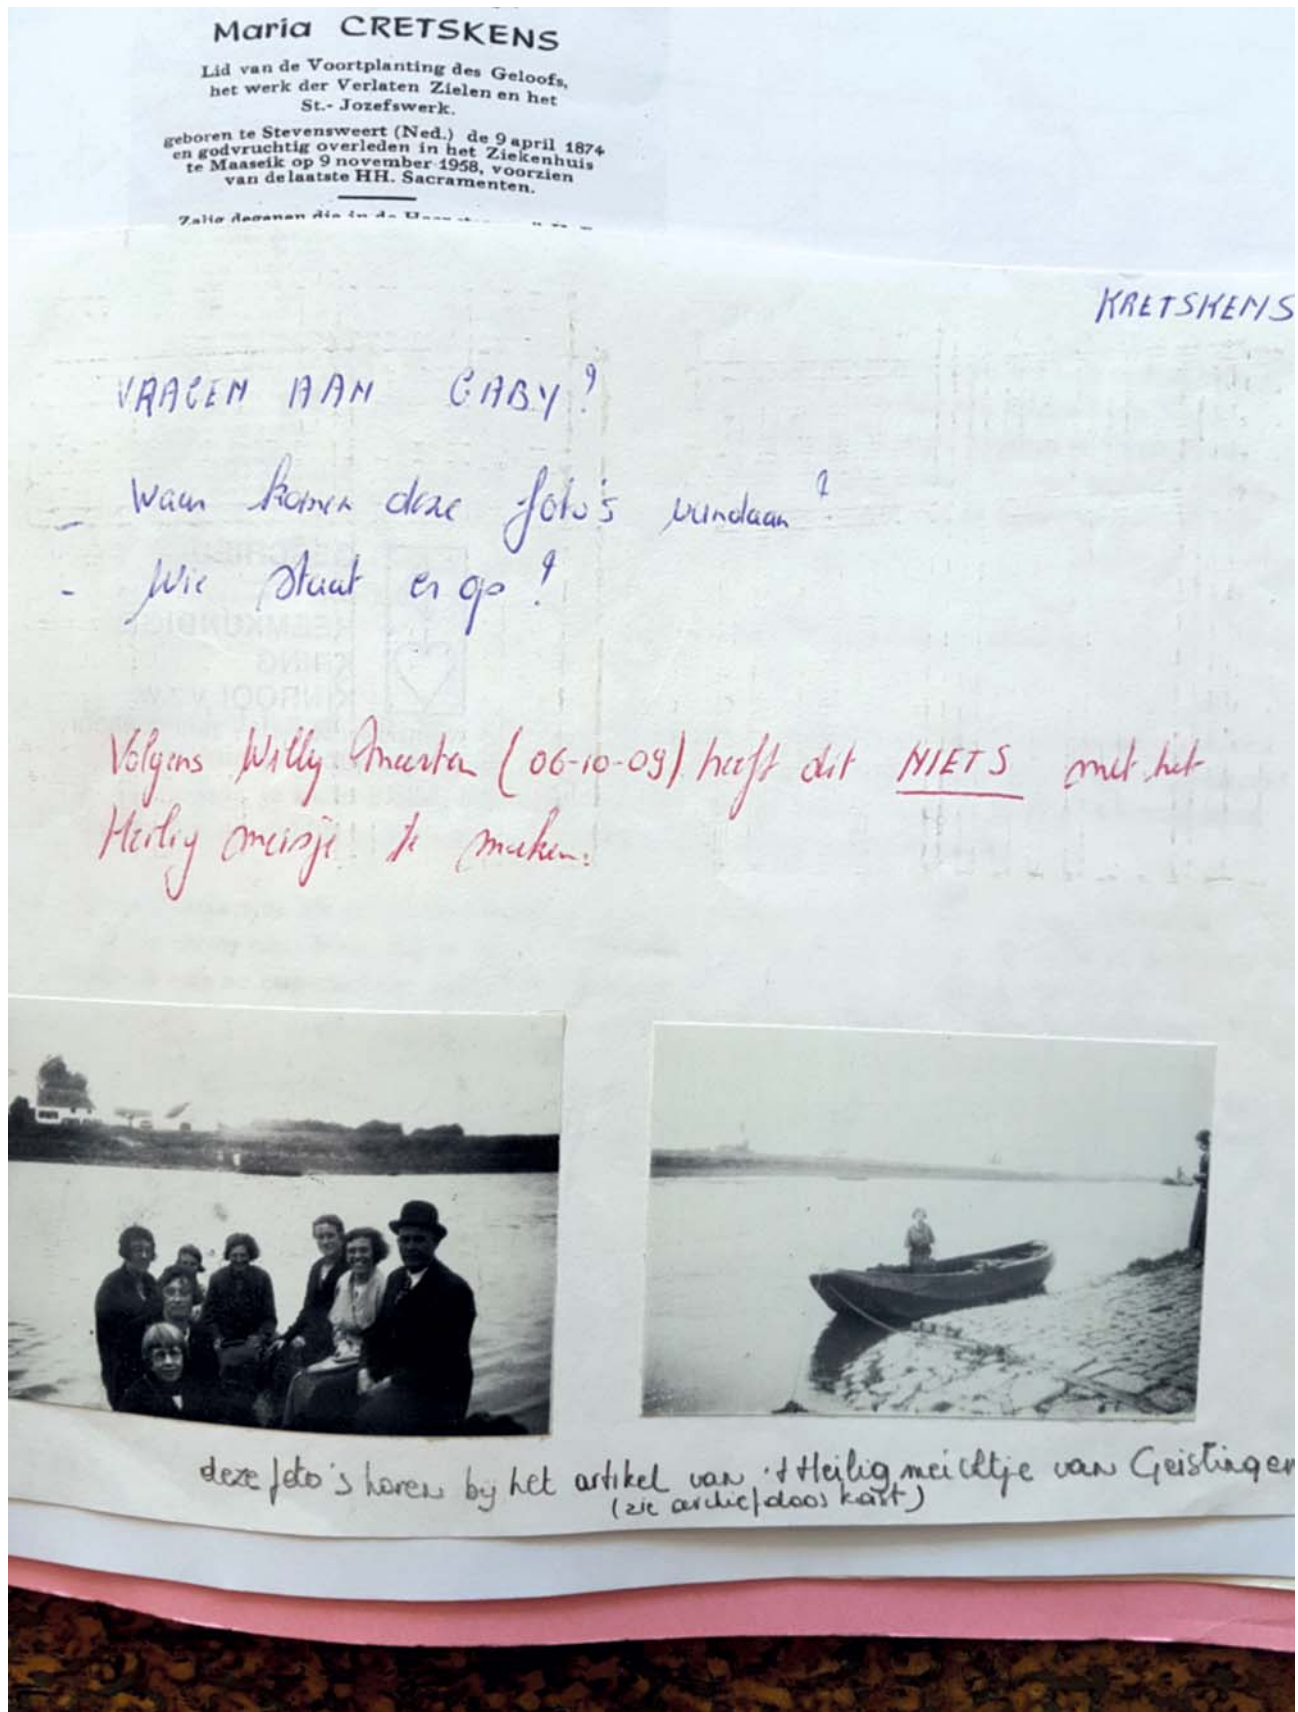 Maria CRETSKENS
Lid van de Voortplanting des Geloofs,
het werk der Verlaten Zielen en het
St.- Jozefswerk.
geboren te Stevensweert (Ned.) de 9 april 1874
en godvruchtig overleden in het Ziekenhuis
te Maaseik op 9 november 1958, voorzien
van de laatste HH. Sacramenten.
Zalig degenen die in de
KRETSKENS
VRAGEN AAN GABY?
- Waar komen deze foto's vandaan?
- Wie staat er op?
Volgens Willy Smeets (06-10-09) heeft dit NIETS met het
Heilig meisje te maken.
deze foto's horen bij het artikel van 't Heilig meichtje van Geistingen
(zie archiefdoos kast)